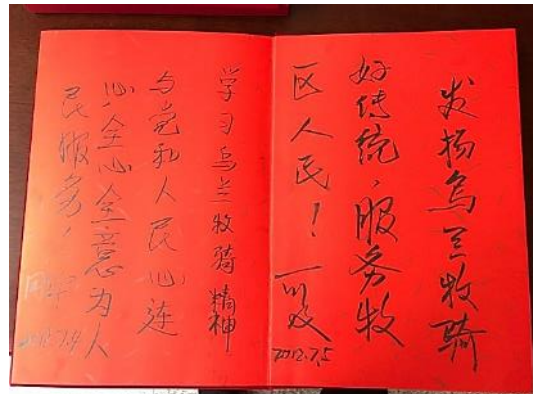 发扬乌兰牧骑
好传统，服务牧
区人民！
2012.7.5
学习乌兰牧骑精神
与党和人民心连
心，全心全意为人
民服务！